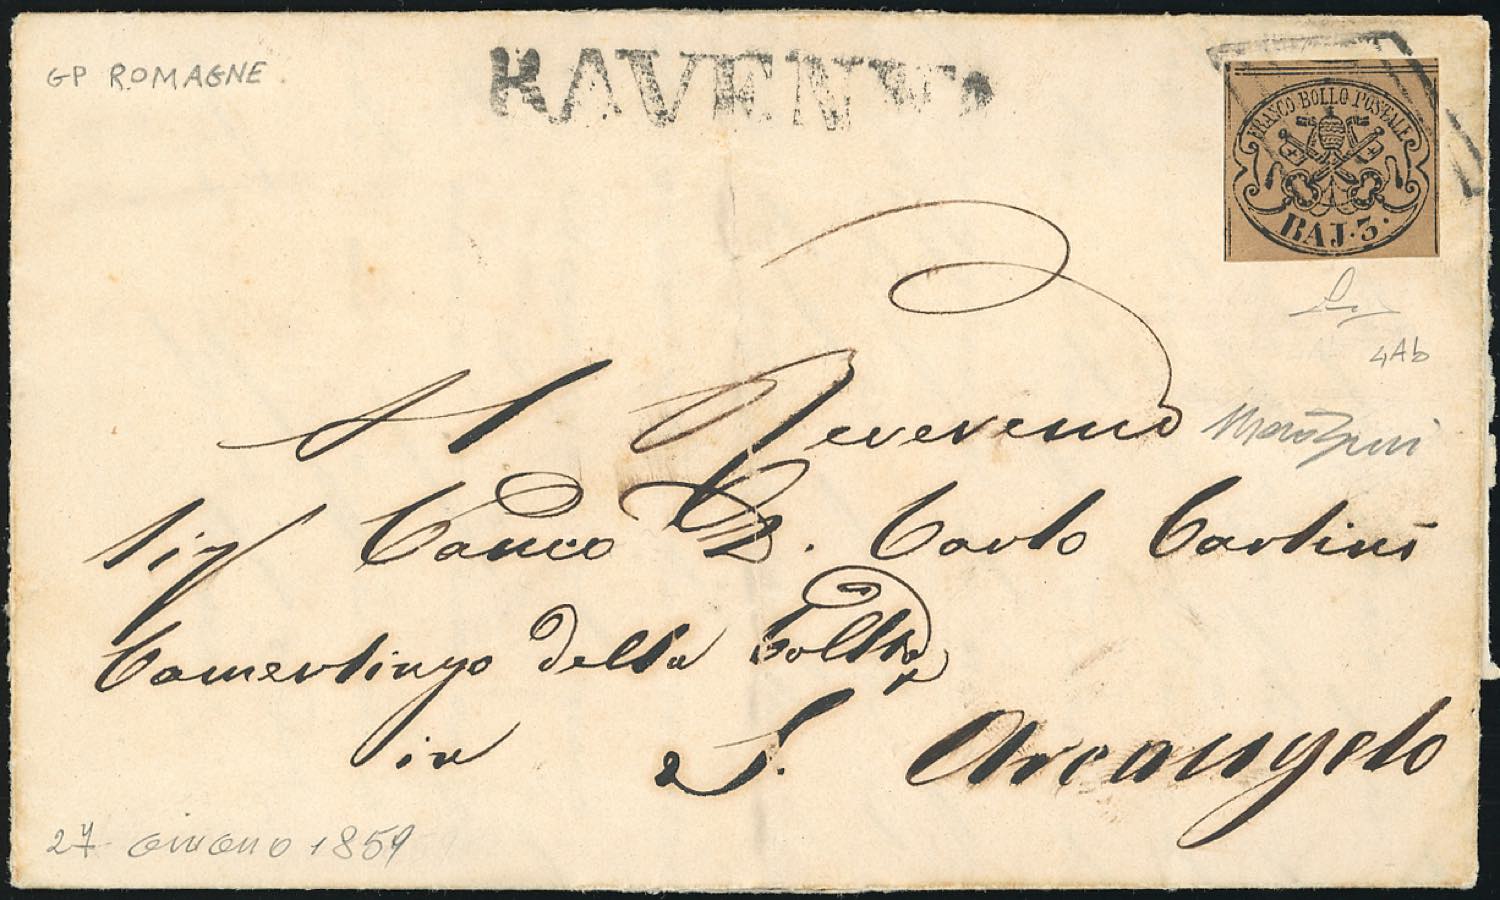 GP ROMAGNE
RAVENNA
FRANCO BOLLO POSTALE
BAJ. 3.
4Ab
Al Reverendo
Sig Canco D. Carlo Carlini
Camerlingo della Colltta
in S. Arcangelo
27 GIUGNO 1859